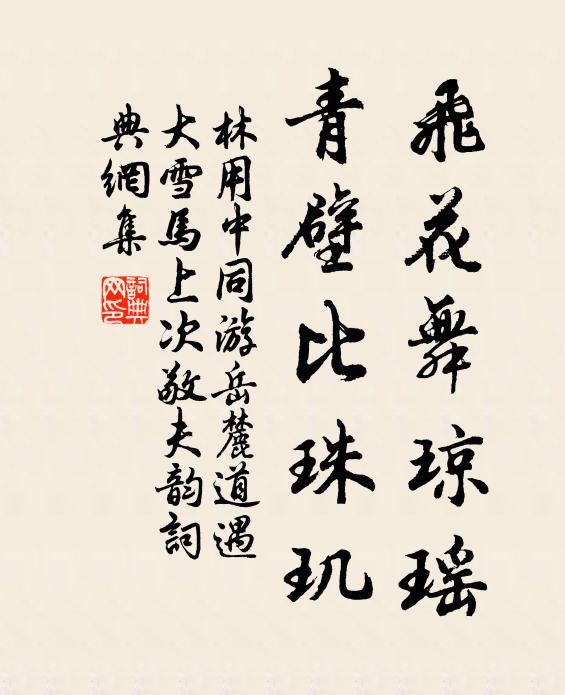 飛花舞琼瑶
青壁比珠玑
林用中同游岳麓道遇
大雪馬上次敬夫韵詞
典網集
詞典网印